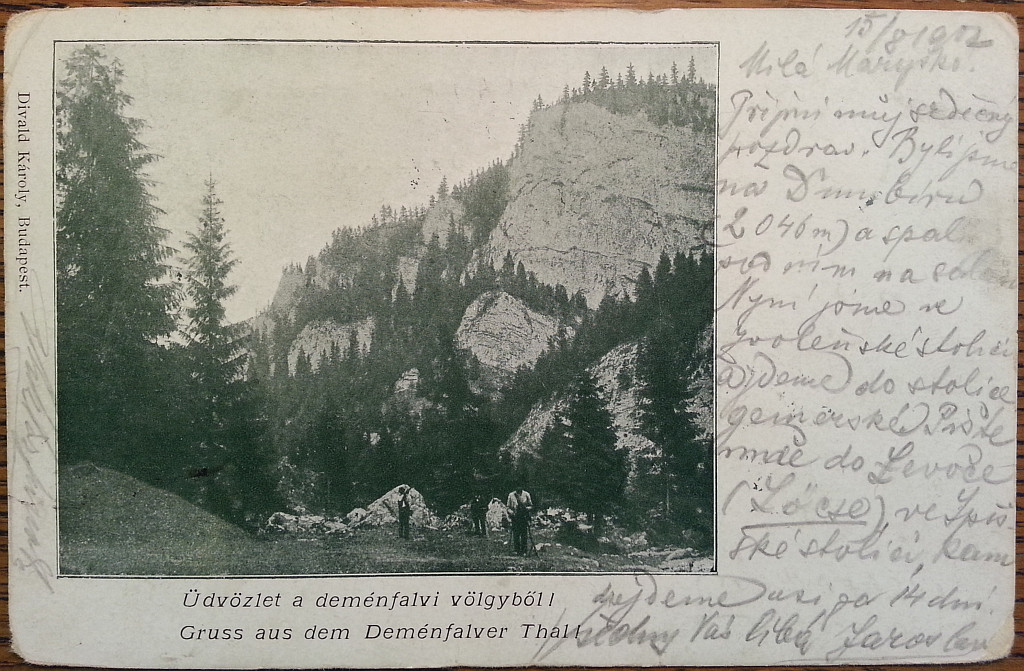 15/8 1902
Milá Maryško.
Přijmi můj srdečný
pozdrav. Byli jsme
na Ďumbíru
(2046 m) a spal
pod ním na
Nyní jsme ve
zvoleňské stolici
a jdeme do stolice
gemerské. Pište
mně do Levoče
(Lőcse) ve Spiš
ské stolici, kam
dojdeme asi za 14 dní.
Všechny Vás líbá Jaroslav
Divald Károly, Budapest.
Üdvözlet a deménfalvi völgyből!
Gruss aus dem Deménfalver Thal!